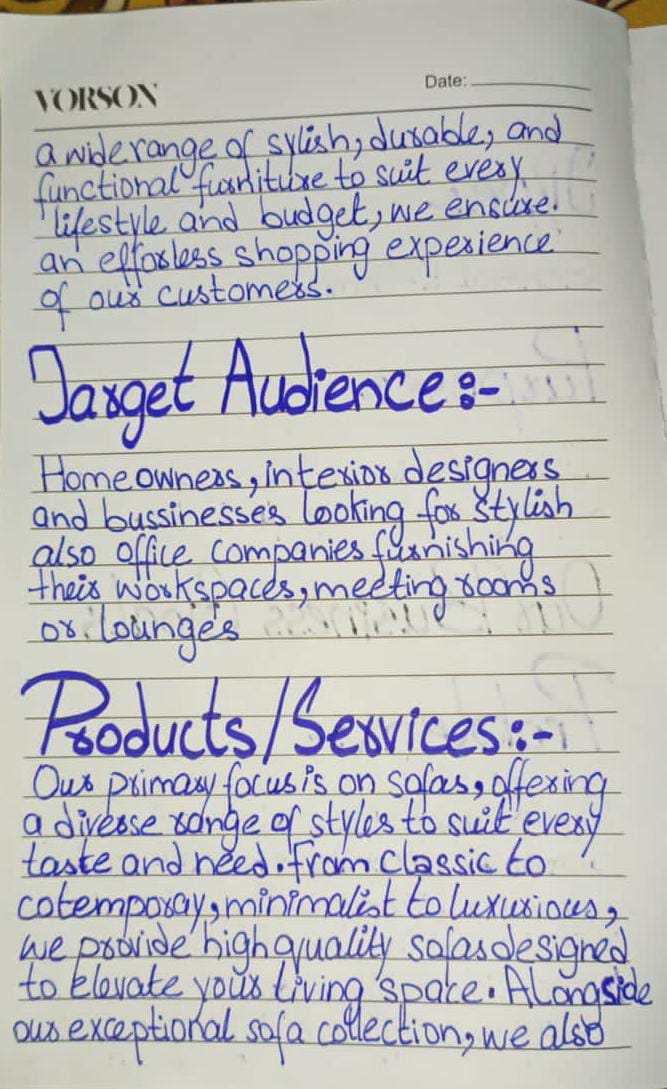 VORSON
Date:
a wide range of sylish, durable, and
functional furniture to suit every
lifestyle and budget, we ensure
an efforless shopping experience
of our customers.
Target Audience:-
Homeowners, interior designers
and bussinesses looking for stylish
also office companies furnishing
their workspaces, meeting rooms
or lounges
Products/Services:-
Our primary focus is on sofas, offering
a diverse range of styles to suit every
taste and need. From classic to
cotemporay, minimalist to luxurious,
we provide high quality sofas designed
to elevate your living space. Alongside
our exceptional sofa collection, we also